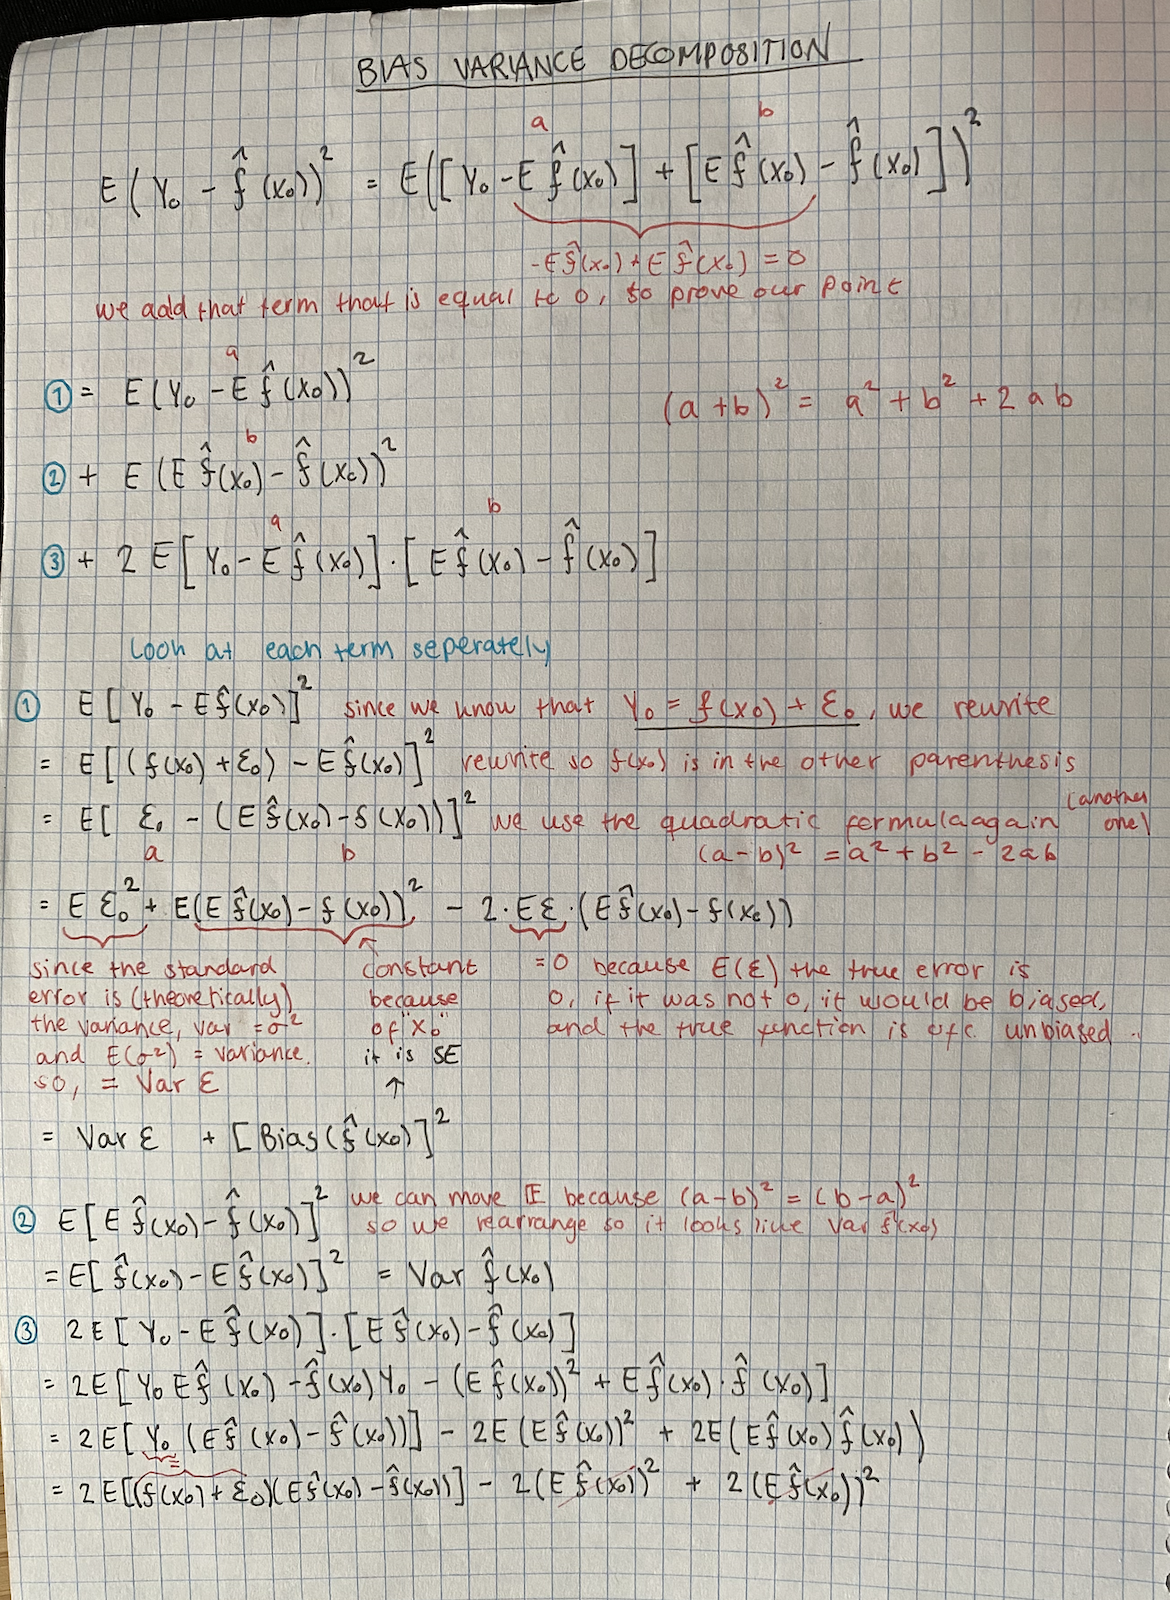 BIAS VARIANCE DECOMPOSITION
a b
E(Y₀ - f̂(x₀))² = E([Y₀ - E f̂(x₀)] + [E f̂(x₀) - f̂(x₀)])²
-E f̂(x₀) + E f̂(x₀) = 0
we add that term that is equal to 0, to prove our point
a
① = E(Y₀ - E f̂(x₀))²
(a+b)² = a² + b² + 2ab
b
② + E(E f̂(x₀) - f̂(x₀))²
a b
③ + 2E[Y₀ - E f̂(x₀)]·[E f̂(x₀) - f̂(x₀)]
Look at each term seperately
① E[Y₀ - E f̂(x₀)]² since we know that Y₀ = f(x₀) + ε₀, we rewrite
= E[(f(x₀) + ε₀) - E f̂(x₀)]² rewrite so f(x₀) is in the other parenthesis
= E[ε₀ - (E f̂(x₀) - f(x₀))]² we use the quadratic formula again (another one)
a b (a-b)² = a² + b² - 2ab
= E ε₀² + E(E f̂(x₀) - f(x₀))² - 2·Eε·(E f̂(x₀) - f(x₀))
since the standard constant =0 because E(ε) the true error is
error is (theoretically) because 0, if it was not 0, it would be biased,
the variance, var = σ² of "x₀" and the true function is ofc unbiased.
and E(σ²) = variance. it is SE
so, = Var ε ↑
= Var ε + [Bias(f̂(x₀)]²
② E[E f̂(x₀) - f̂(x₀)]² we can move E because (a-b)² = (b-a)²
so we rearrange so it looks like Var f̂(x₀)
= E[f̂(x₀) - E f̂(x₀)]² = Var f̂(x₀)
③ 2E[Y₀ - E f̂(x₀)]·[E f̂(x₀) - f̂(x₀)]
= 2E[Y₀ E f̂(x₀) - f̂(x₀)Y₀ - (E f̂(x₀))² + E f̂(x₀)·f̂(x₀)]
= 2E[Y₀(E f̂(x₀) - f̂(x₀))] - 2E(E f̂(x₀))² + 2E(E f̂(x₀) f̂(x₀))
=
= 2E[(f(x₀) + ε₀)(E f̂(x₀) - f̂(x₀))] - 2(E f̂(x₀))² + 2(E f̂(x₀))²